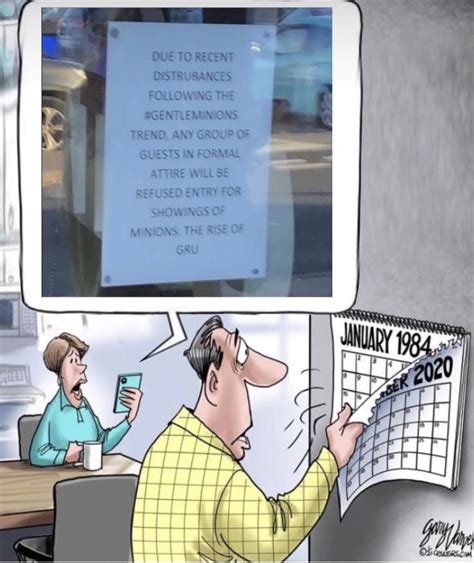 DUE TO RECENT
DISTRUBANCES
FOLLOWING THE
#GENTLEMINIONS
TREND, ANY GROUP OF
GUESTS IN FORMAL
ATTIRE WILL BE
REFUSED ENTRY FOR
SHOWINGS OF
MINIONS: THE RISE OF
GRU
JANUARY 1984
BER 2020